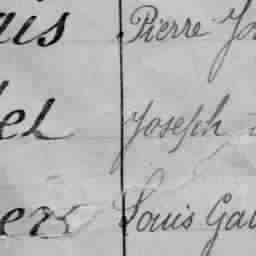 ais Pierre Jo
el Joseph
ers Louis Gau